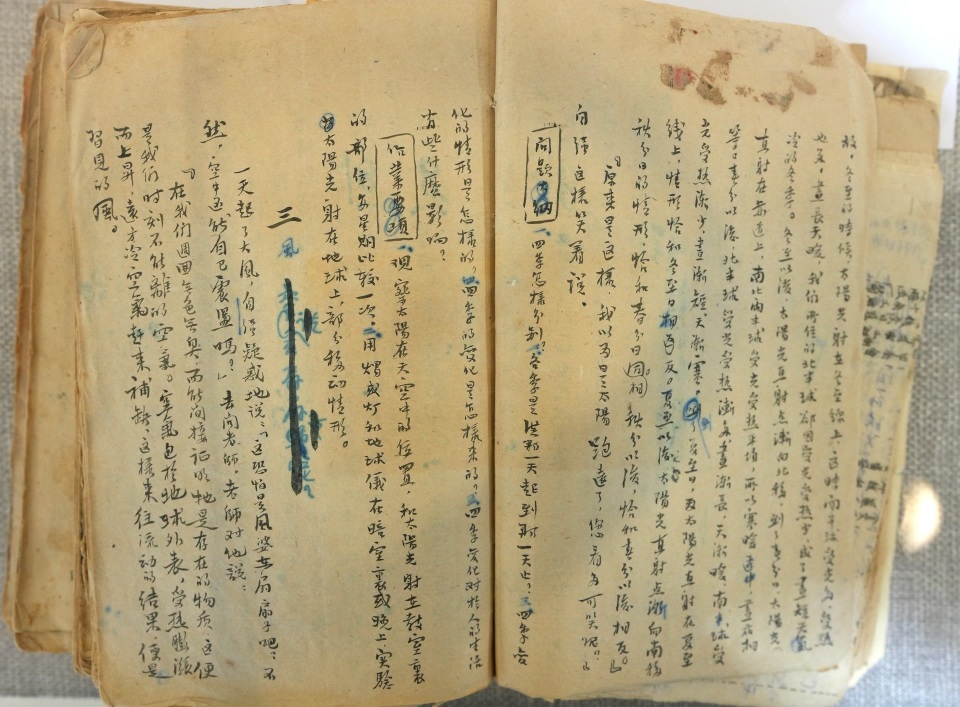 故。冬至的時候，太陽光射在冬至線上，這時南半球受光多，受熱
也多，晝長天暖，我们所住的北半球却因受光受熱少，成了晝短天氣
冷的冬季。冬至以後，太陽光直射点漸向北移，到了春分日，太陽光
直射在赤道上，南北兩半球受光受熱平均，所以寒暖適中，晝夜相
等。春分以後，北半球受光受熱漸多，晝漸長，天漸暖，南半球受
光受熱漸少，晝漸短，天漸寒。到了夏至日，因太陽光直射在夏至
線上，情形恰和冬至日相反。夏至以後，太陽光直射点漸向南移
秋分日的情形，恰和春分日同相，秋分以後，恰和春分以後相反。』
『原来是這樣，我以為是太陽跑遠了，您看多可笑呢？』
自強這樣笑着說。
問題歸納 一、四季怎樣分别？二、各季是從那一天起到那一天止？三、四季变
化的情形是怎樣的？四、四季的变化是怎樣来的？五、四季变化对於人的生活
有些什麽影响？
作業要項 一、观察太陽在天空中的位置，和太陽光射在教室裏
的部位，每星期比較一次。二、用燭或灯和地球儀在暗室裏或晚上实驗
太陽光射在地球上，部分移动情形。
三 風
一天起了大風，自強疑惑地說：「這恐怕是風婆女扇扇子吧？不
然，空中还能自己震盪嗎？」去问老師，老師对他說：
『在我們週囲無色無臭而能间接证明牠是存在的物质，这便
是我們时刻不能離的空氣。空氣包於地球外表，受热膨漲
而上昇，遠方冷空氣赶来補缺，这樣来往流动的结果，便是
習見的風。